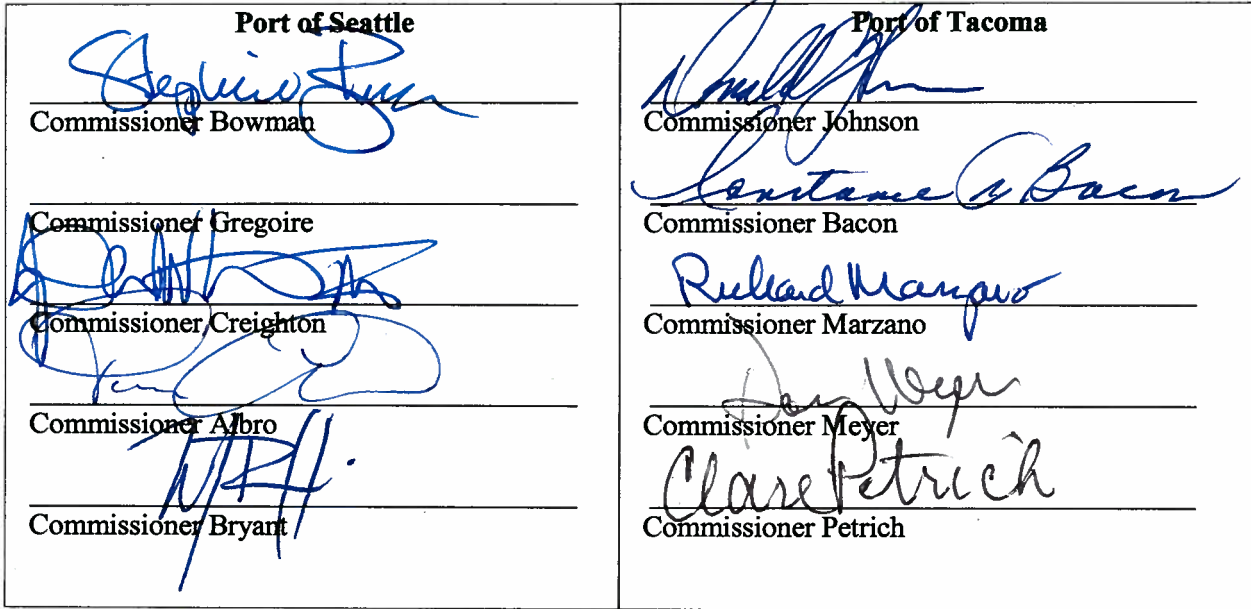 Port of Seattle
Commissioner Bowman
Commissioner Gregoire
Commissioner Creighton
Commissioner Albro
Commissioner Bryant
Port of Tacoma
Donald
Commissioner Johnson
Constance Bacon
Commissioner Bacon
Richard Marzano
Commissioner Marzano
Don Meyer
Commissioner Meyer
Clare Petrich
Commissioner Petrich